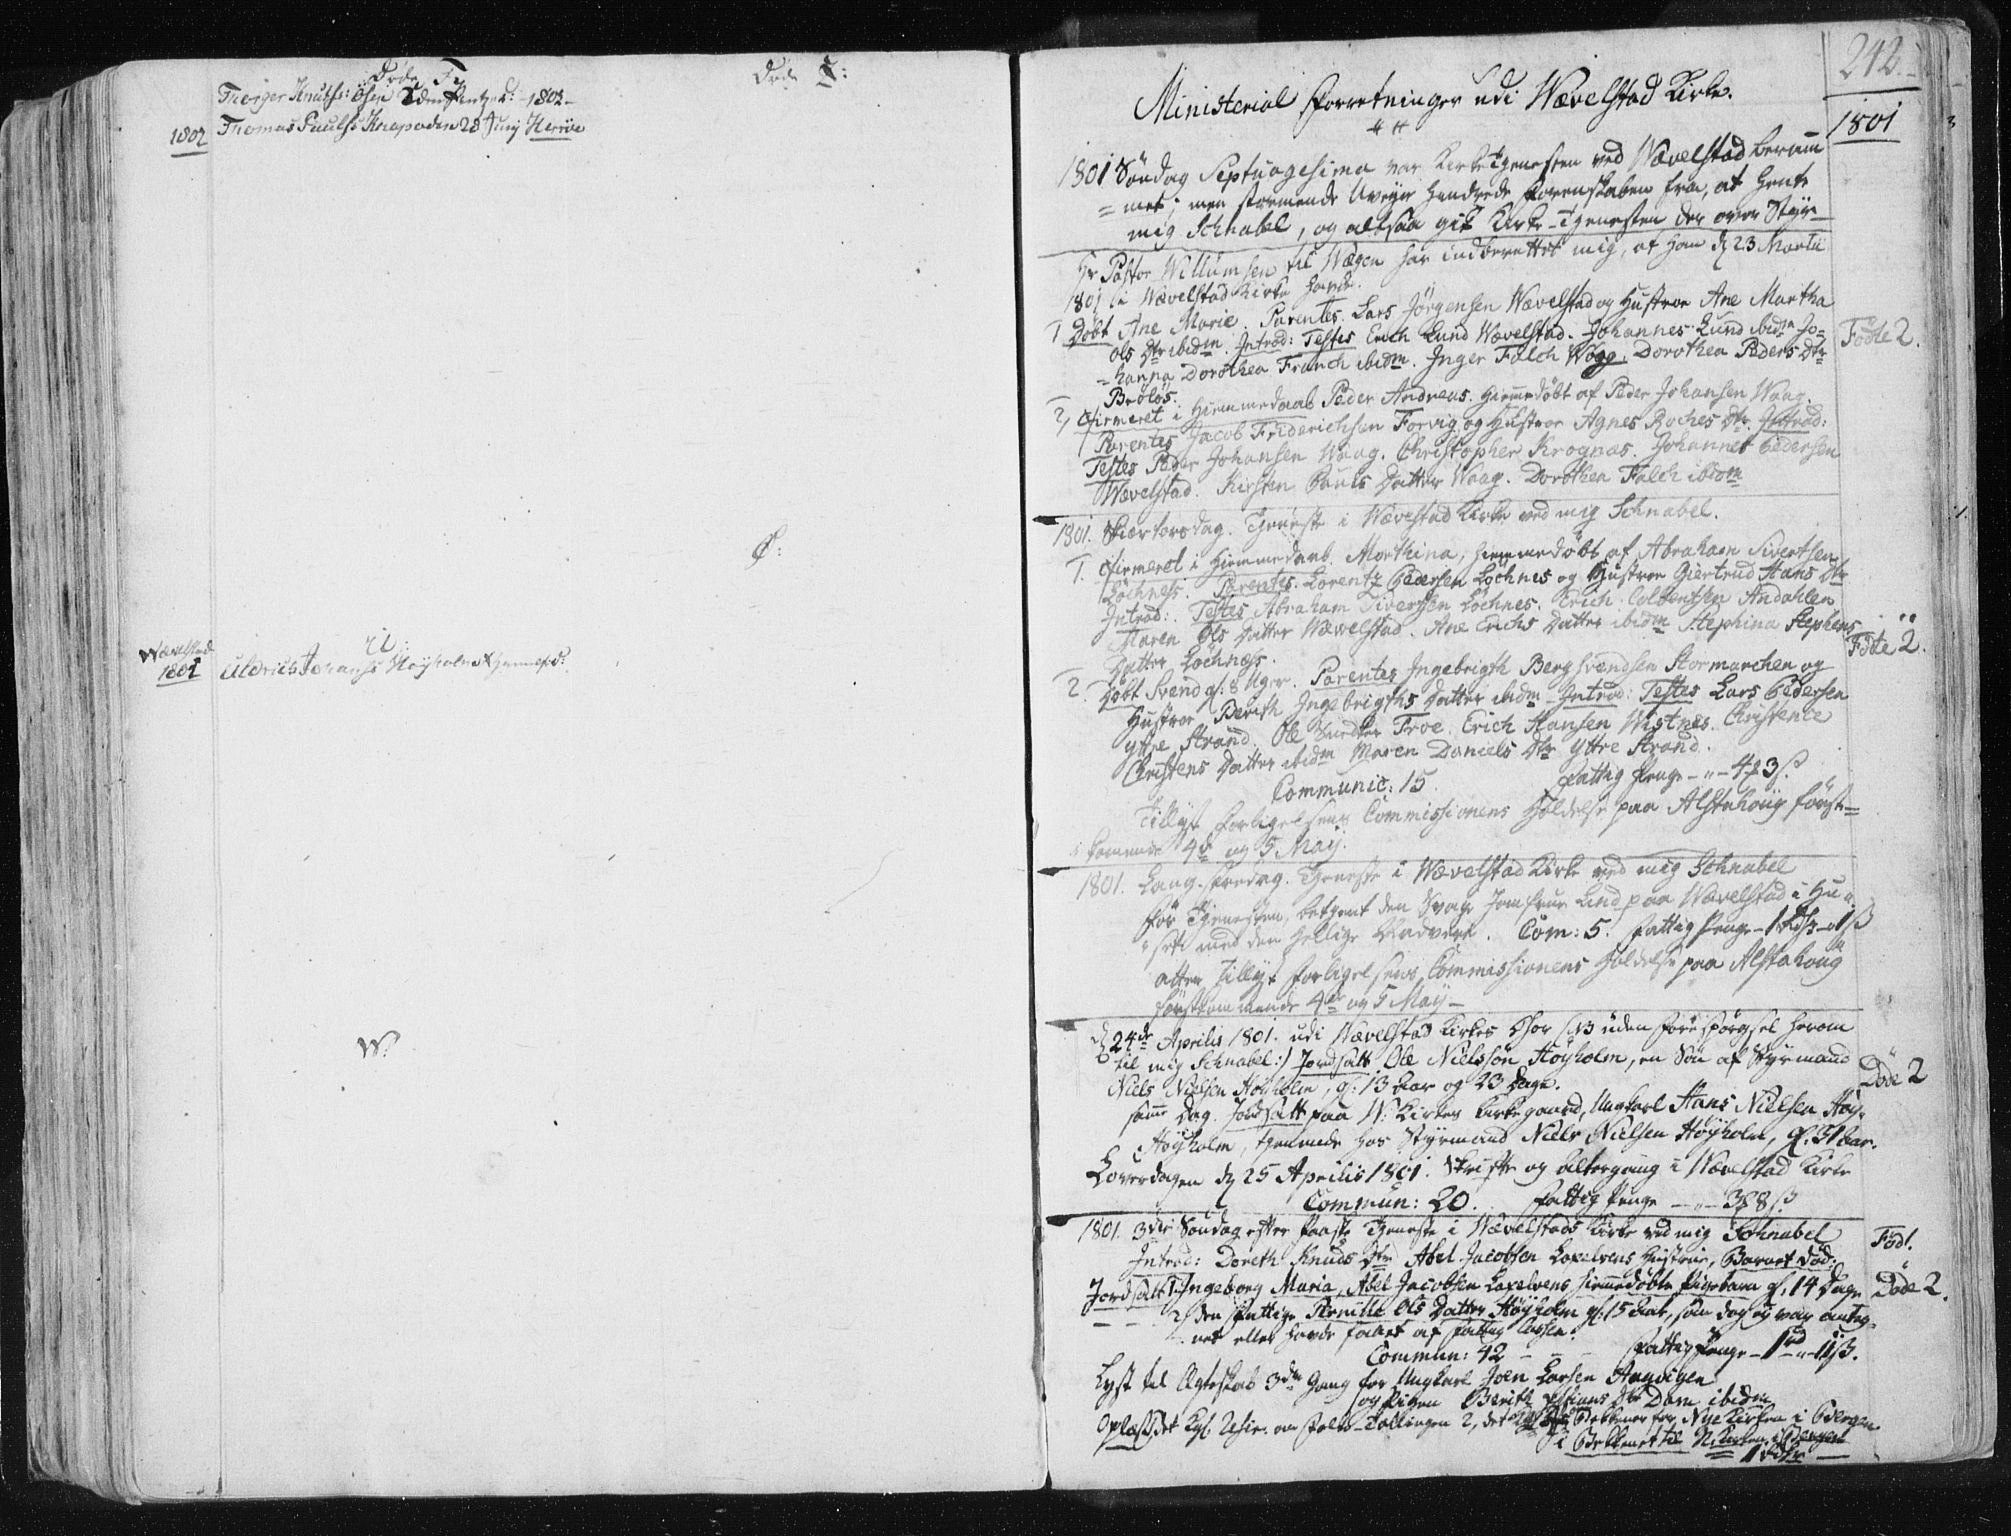 Døde T:
Døde T:
Thomas Paulss: Knapoden 28 Juny Herröe
1802
Ø:
Wævelstad
1801
U:
Uldrich Johanss: Høyholm
W:
242.
1801
Ministerial Forretninger udi Wævelstad Kirke.
1801 Søndag Septuagesima var Kirke Tjenesten ved Wævelstad beram
= met; men stormende Uveyr hindrede Forenskaben fra, at hente
mig Schnabel, og altsaa gik Kirke-Tjenesten der over Styr
Hr Pastor Willumsen til Wægen har indberettet mig, at han d 23 Martii
1801 i Wævelstad Kirke havde.
1 Døbt Ane Marie. Parentes Lars Jörgensen Wævelstad og Hustroe Ane Martha
Ols Dtr ibidm. Introd: Testes Erich Lund Wævelstad. Johannes Lund ibidm Jo-
= hanna Dorothea Franch ibidm. Inger Falch Wogg. Dorothea Peders Dtr
Bröløs.
Födte 2.
2, Confirmeret i Hiemmedaab Peder Andreas. Hiemmedøbt af Peder Johansen Waag.
Parentes Jacob Friderichsen Forvig og Hustroe Agnes Roches Dtr. Introd:
Testes Peder Johansen Waag. Christopher Krognæs. Johannes Pedersen
Wævelstad. Kirsten Pauls Datter Waag. Dorothea Falch ibidm
1801. Skiertorsdag. Tjeneste i Wævelstad Kirke ved mig Schnabel.
1. Confirmeret i Hiemmedaab. Marthina, hiemmedøbt af Abraham Sivertsen
Löchnes. Parentes. Lorentz Pedersen Löchnes og Hustroe Giertrud Hans Dtr
Introd: Testes Abraham Sivertsen Löchnes. Erich Colbentsen Andahlen
Maren Ols Datter Wævelstad. Ane Erichs Datter ibidm Stephina Stephens
Datter Löchnæs.
Födte 2.
2. Døbt Svend gl: 8 Uger. Parentes Ingebrigth Bergsvendsen Stormarchen og
Hustroe Berith Ingebrigths Datter ibidm Introd: Testes Lars Pedersen
yttre Strand. Ole Troe. Erich Hansen Wistnes. Christence
Christens Datter ibidm Maren Daniels Dtr Yttre Strand.
Communic: 15. Fattig Penge - " - 4 3 s.
Tillyst Forligelsens Commissionens Holdelse paa Alstahoug først=
kommende 4de og 5 May.
1801. Lang-Fredag. Tjeneste i Wævelstad Kirke ved mig Schnabel
Før Tjenesten betjent den svage Jomfrue Lind paa Wævelstad i Hu-
= set med den hellige Nadvere. Com: 5. Fattig Penge
atter Tillyst Forligelsens Commissionens Holdelse paa Alstahoug
førstkommende 4de og 5 May
d 24de Aprilis 1801. udi Wævelstad Kirkes Chor (NB uden Forespørgsel herom
til mig Schnabel:) Jordsatt Ole Nielssön Høyholm, en Søn af Styrmand
Niels Nielsen Høyholm, gl: 13 Aar og 23 Dage.
samme Dag. Jordsatt paa W: Kirkes Kirkegaard, Ungkarl Hans Nielsen Høy-
Høyholm, tjenende hos Styrmand Niels Nielsen Høyholm, gl. 31 Aar.
Døde 2
Løverdagen d 25 Aprilis 1801. Skrifte og Altergang i Wævelstad Kirke
Commun: 20. Fattig Penge - " - 3 8 s
1801. 3die Søndag efter Paaske Tjeneste i Wævelstads Kirke ved mig Schnabel
Introd: Doreth Knuds Dtr Abel Jacobsen Laxelvens Hustrue, Barnet död.
Jordsatt 1. Ingeborg Maria, Abel Jacobsen Laxelvens hiemmedøbte Pigebarn gl. 14 Dage
2) den Fattige Pernille Ols Datter Høyholm gl: 15 Aar, som dog ej var anteg-
net eller havde faaet af Fattig Cassen.
Född.
Døde 2.
Commun: 42 - - - Fattig Penge - 1 rd " 11 s.
Lyst til Ægteskab 3die Gang for Ungkarl Joen Larsen Aagvigen
og Pigen Berith Dtr Dam ibidm
Oplæst det Kgl. om Folke-Tællingen 2, det Bekkener for Nye Kirken i Bergen
i Bekkenet til N: Kirken i Bergen